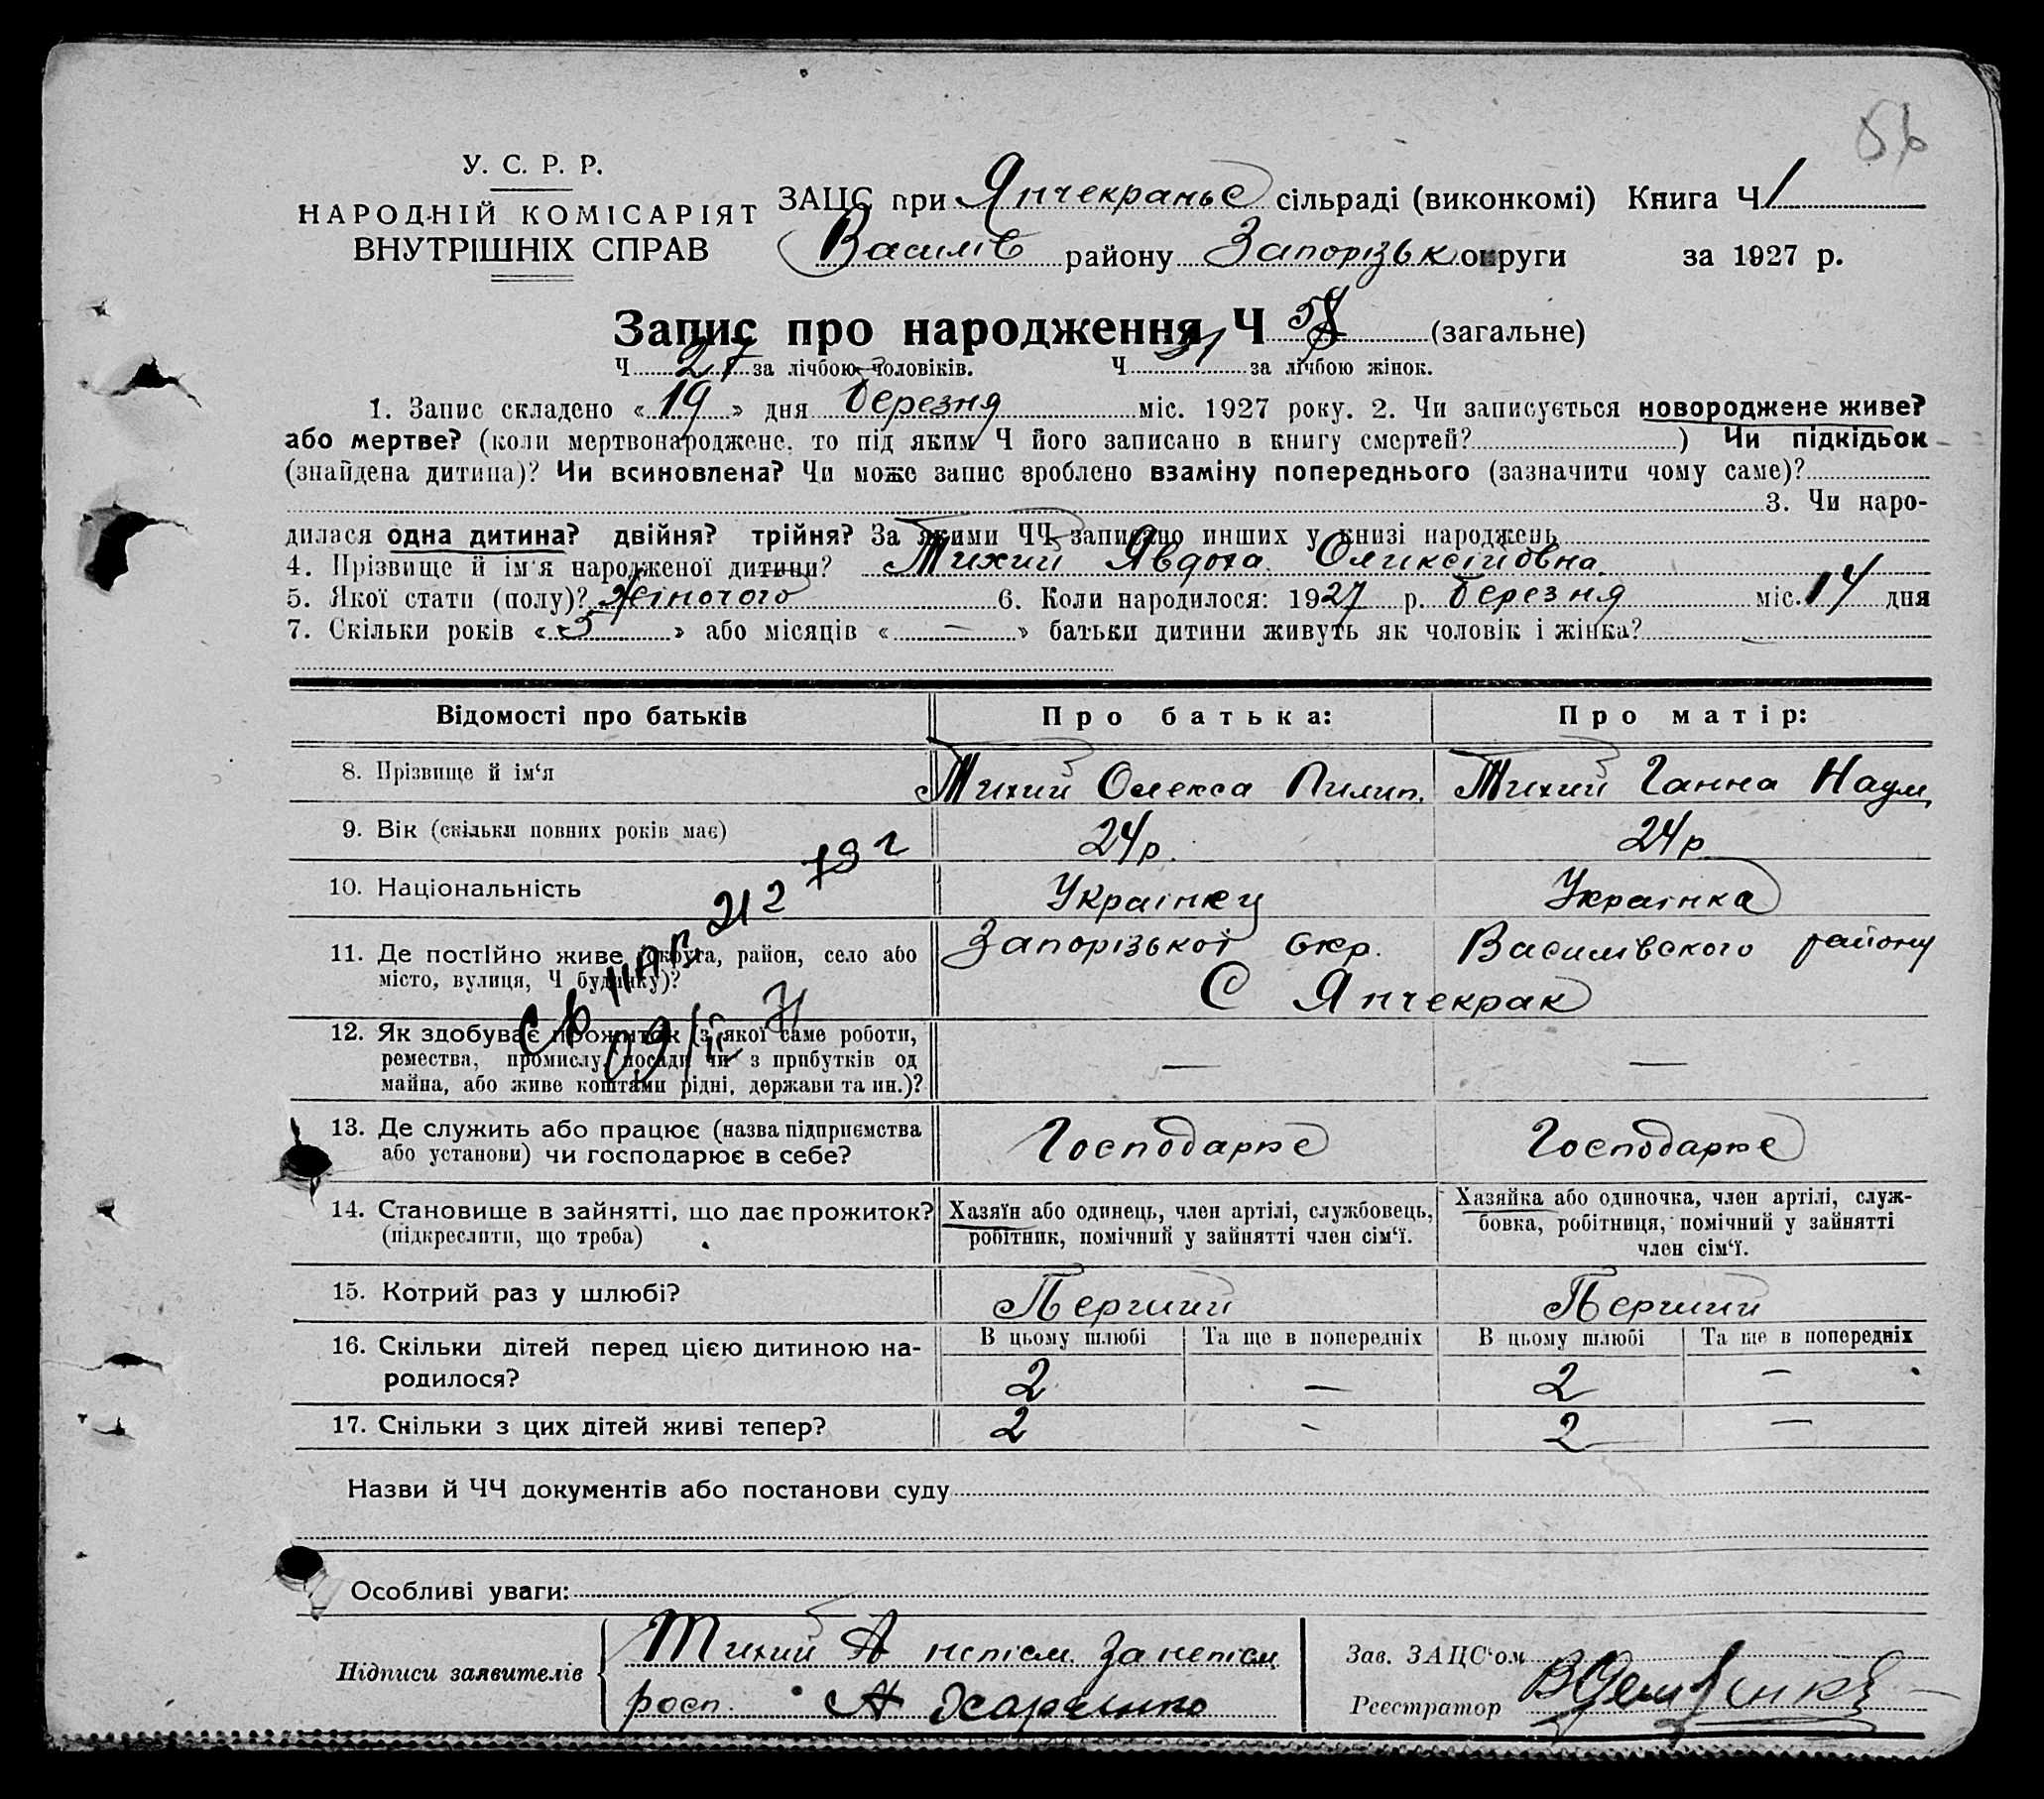 56
У. С. Р. Р.
НАРОДНІЙ КОМІСАРІЯТ
ВНУТРІШНІХ СПРАВ
ЗАЦС при Янчекраньс сільраді (виконкомі) Книга Ч 1
Василів району Запорізьк округи за 1927 р.
Запис про народження Ч 58 (загальне)
Ч 27 за лічбою чоловіків. Ч 31 за лічбою жінок.
1. Запис складено « 19 » дня березня міс. 1927 року. 2. Чи записується новороджене живе?
або мертве? (коли мертвонароджене, то під яким Ч його записано в книгу смертей? ) Чи підкідьок
(знайдена дитина)? Чи всиновлена? Чи може запис зроблено взаміну попереднього (зазначити чому саме)?
3. Чи наро-
дилася одна дитина? двійня? трійня? За якими ЧЧ записано инших у книзі народжень
4. Прізвище й ім'я народженої дитини? Тихий Явдоха Оликсіїовна
5. Якої стати (полу)? Жіночого 6. Коли народилося: 1927 р. березня міс. 14 дня
7. Скільки років « 3 » або місяців « — » батьки дитини живуть як чоловік і жінка? —
Відомості про батьків Про батька: Про матір:
8. Прізвище й ім'я Тихий Олекса Пилип. Тихий Ганна Наум
9. Вік (скільки повних років має) 24 р. 24 р
10. Національність Українец Українка
11. Де постійно живе (округа, район, село або Запорізької Окр. Василівского району
місто, вулиця, Ч будинку)? С Янчекрак
12. Як здобуває прожиток (з якої саме роботи, — —
ремества, промислу, посади чи з прибутків од
майна, або живе коштами рідні, держави та ин.)?
13. Де служить або працює (назва підприємства Господарює Господарює
або установи) чи господарює в себе?
14. Становище в зайнятті, що дає прожиток? Хазяїн або одинець, член артілі, службовець, Хазяйка або одиночка, член артілі, служ-
(підкреслити, що треба) робітник, помічний у зайнятті член сім'ї. бовка, робітниця, помічний у зайнятті
член сім'ї.
15. Котрий раз у шлюбі? Перший Перший
16. Скільки дітей перед цією дитиною на- В цьому шлюбі Та ще в попередніх В цьому шлюбі Та ще в попередніх
родилося? 2 — 2 —
17. Скільки з цих дітей живі тепер? 2 - 2 —
Назви й ЧЧ документів або постанови суду
Особливі уваги:
Підписи заявителів Тихий А непісм. за непісм
росп. А Харченко
Зав. ЗАЦС'ом
Реєстратор